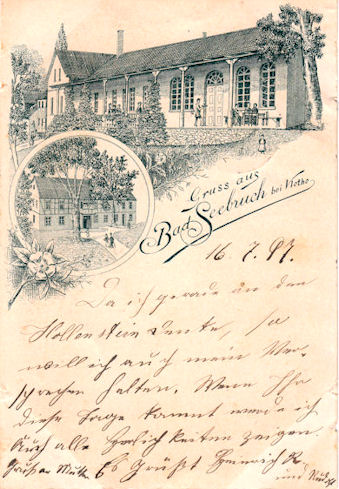 Gruss aus
Bad Seebruch bei Vlotho
16. 7. 97.
Da ich gerade an den
Hollenstein denke, so
will ich auch mein Ver-
sprechen halten. Wenn Ihr
diese Tage kommt werde ich
Euch alle Herlichkeiten zeigen.
Es Grüßt Heinrich
und